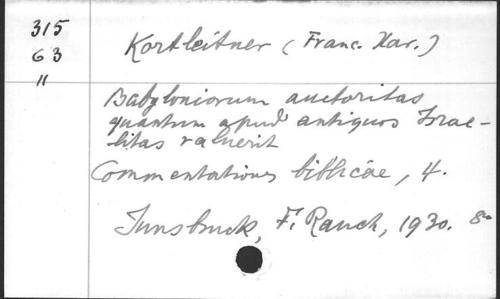 315
63
11
Kortleitner (Franc. Xar.)
Babyloniorum auctoritas
quantum apud antiquos Israe-
litas valuerit
Commentationes biblicae, 4.
Innsbruck, F. Rauch, 1930. 8º